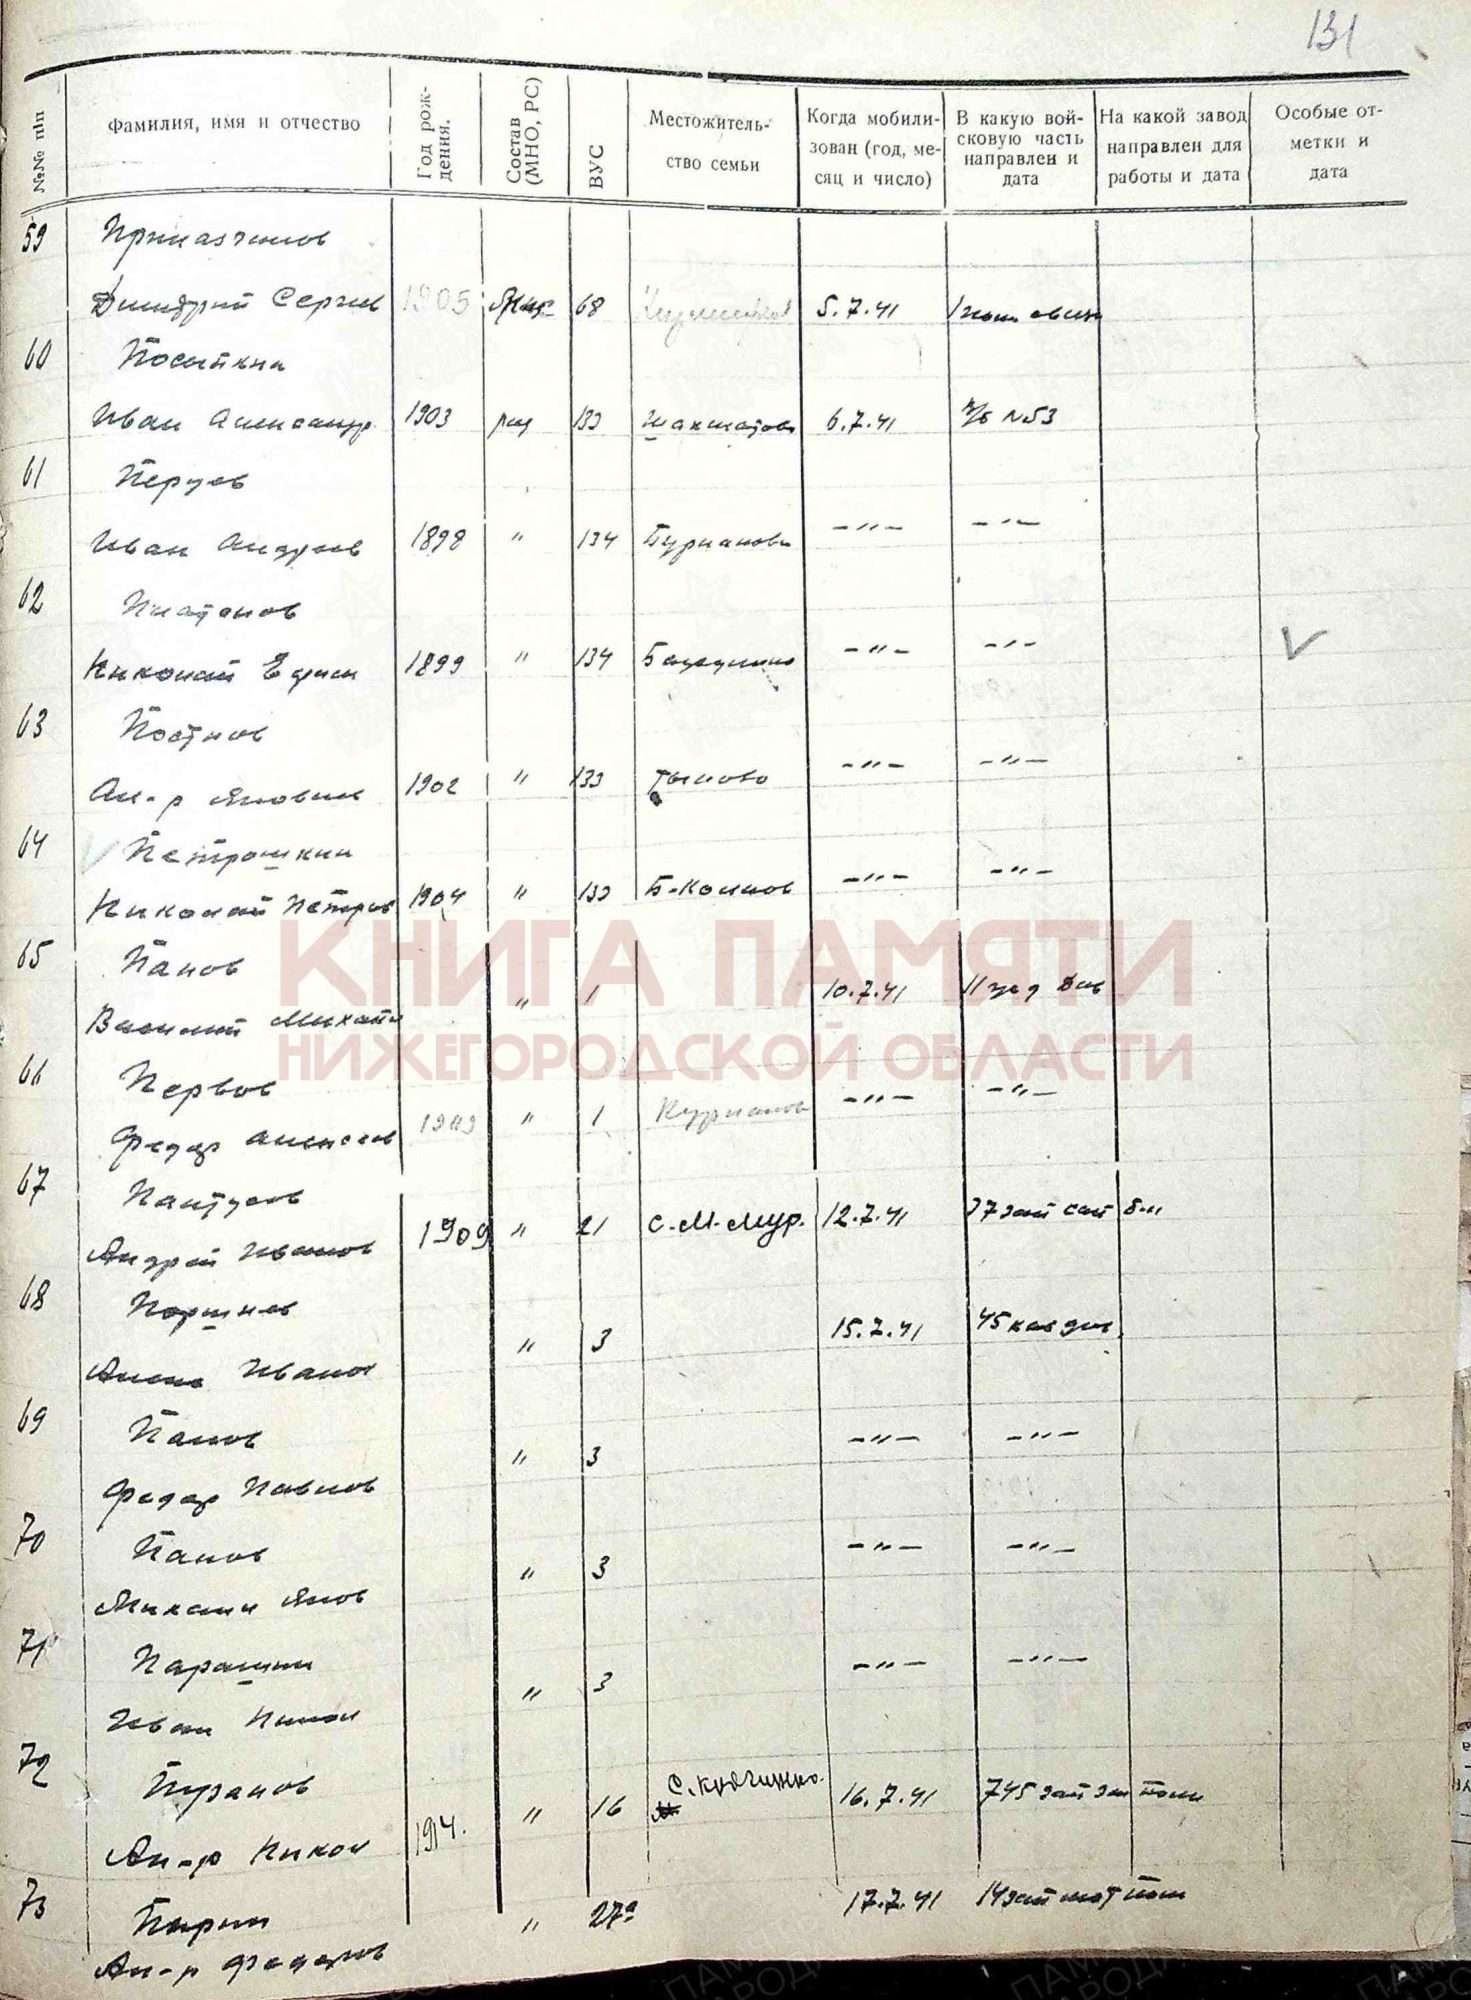 131
№№ п/п
Фамилия, имя и отчество
Год рож-
дения.
Состав
(МНО, РС)
ВУС
Местожитель-
ство семьи
Когда мобили-
зован (год, ме-
сяц и число)
В какую вой-
сковую часть
направлен и
дата
На какой завод
направлен для
работы и дата
Особые от-
метки и
дата
59 Приказчиков
Дмитрий Сергеев 1905 68 5.7.41
60 Посыпкин
Иван Александр 1903 ряд 133 Шахматово 6.7.41 №53
61 Перцев
Иван Андреев 1898 " 134 Бурнаково -"- -"-
62 Платонов
Николай Ефим 1899 " 134 -"- -"- V
63 Постнов
Ал-р Яковлев 1902 " 133 -"- -"-
64 V Петрошкин
Николай Петров 1904 " 133 -"- -"-
65 Панов
Василий Михайл " 1 10.7.41
КНИГА ПАМЯТИ
НИЖЕГОРОДСКОЙ ОБЛАСТИ
66 Первов
Федор Алексеев 1909 " 1 Курмаков -"- -"-
67 Пантусов
Андрей Иванов 1909 " 21 с.М-Мур. 12.7.41 37 зап сап б-н
68 Поршнев
Иванов " 3 15.7.41 45 кав див.
69 Панов
Федор Павлов " 3 -"- -"-
70 Панов
Михаил Яков " 3 -"- -"-
71 Парашин
Иван Никол " 3 -"- -"-
72 Пузанов
Ал-р Никол 1914. " 16 С.Княгинино. 16.7.41 745 зап зен полк
73 Парин
Ал-р Федоров " 27а 17.7.41 14 зап мот полк